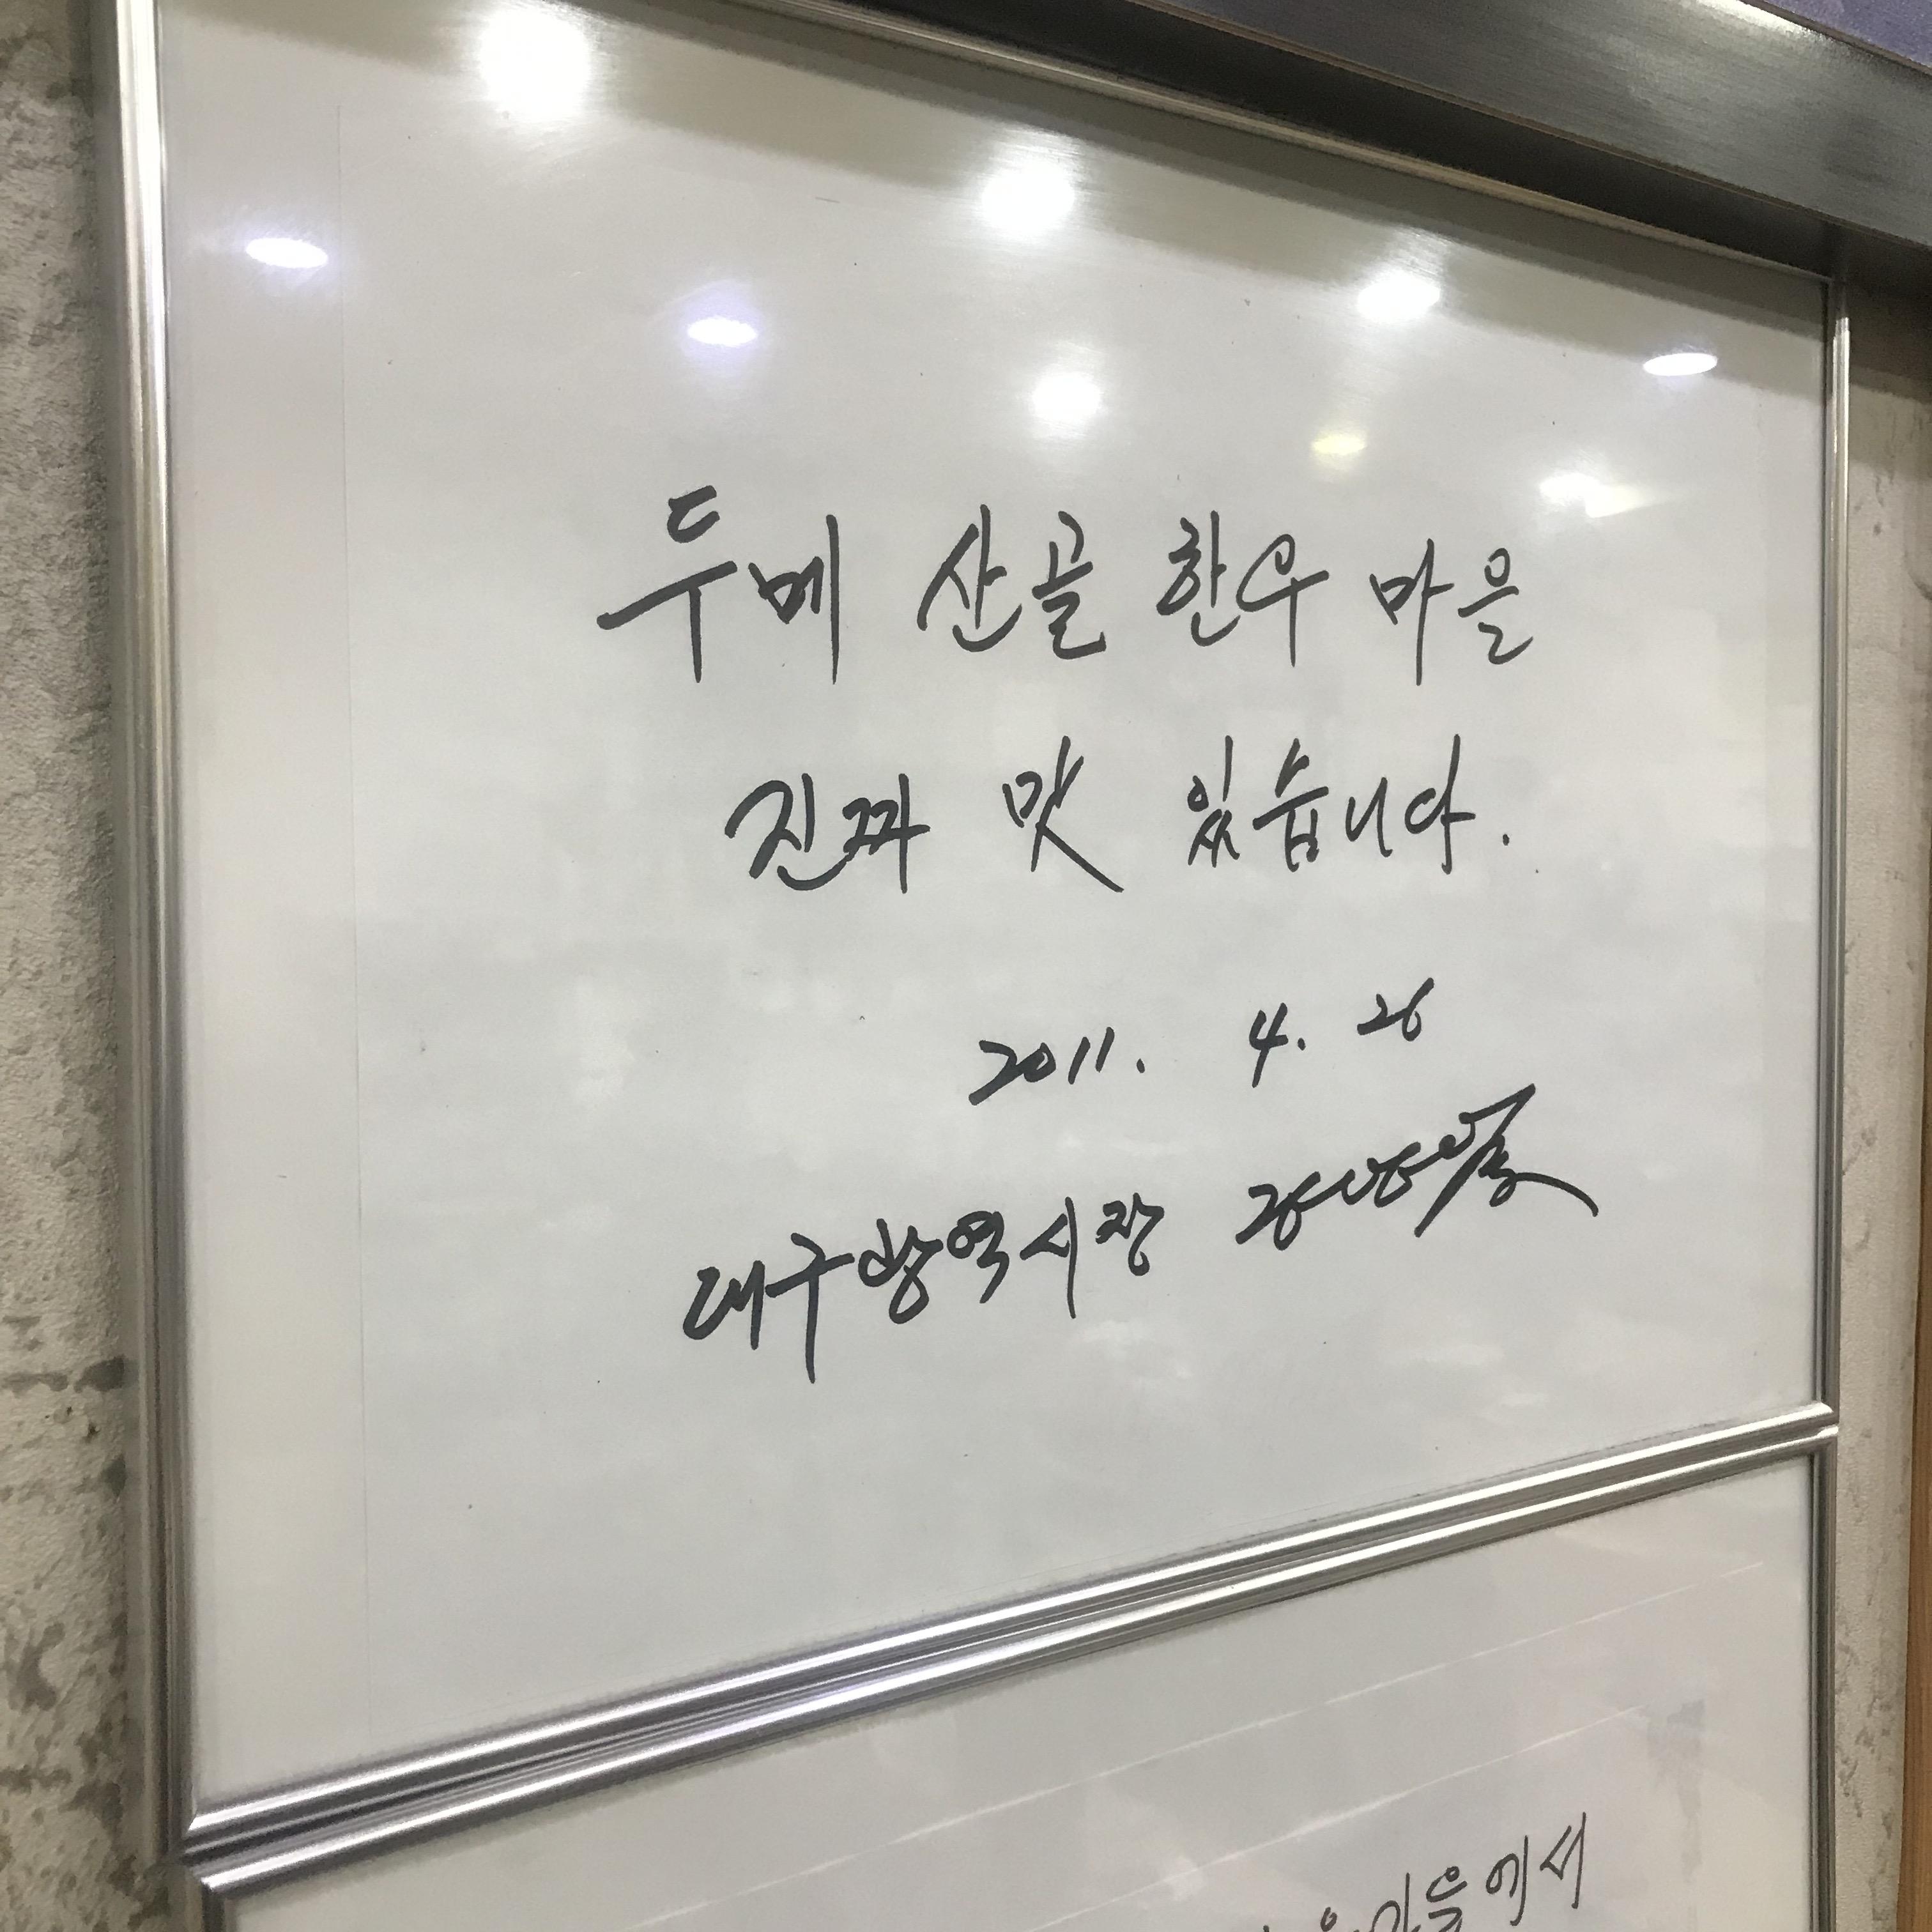 두메 산골 한우 마을
진짜 맛 있습니다.
2011. 4. 26
대구광역시장
마을에서